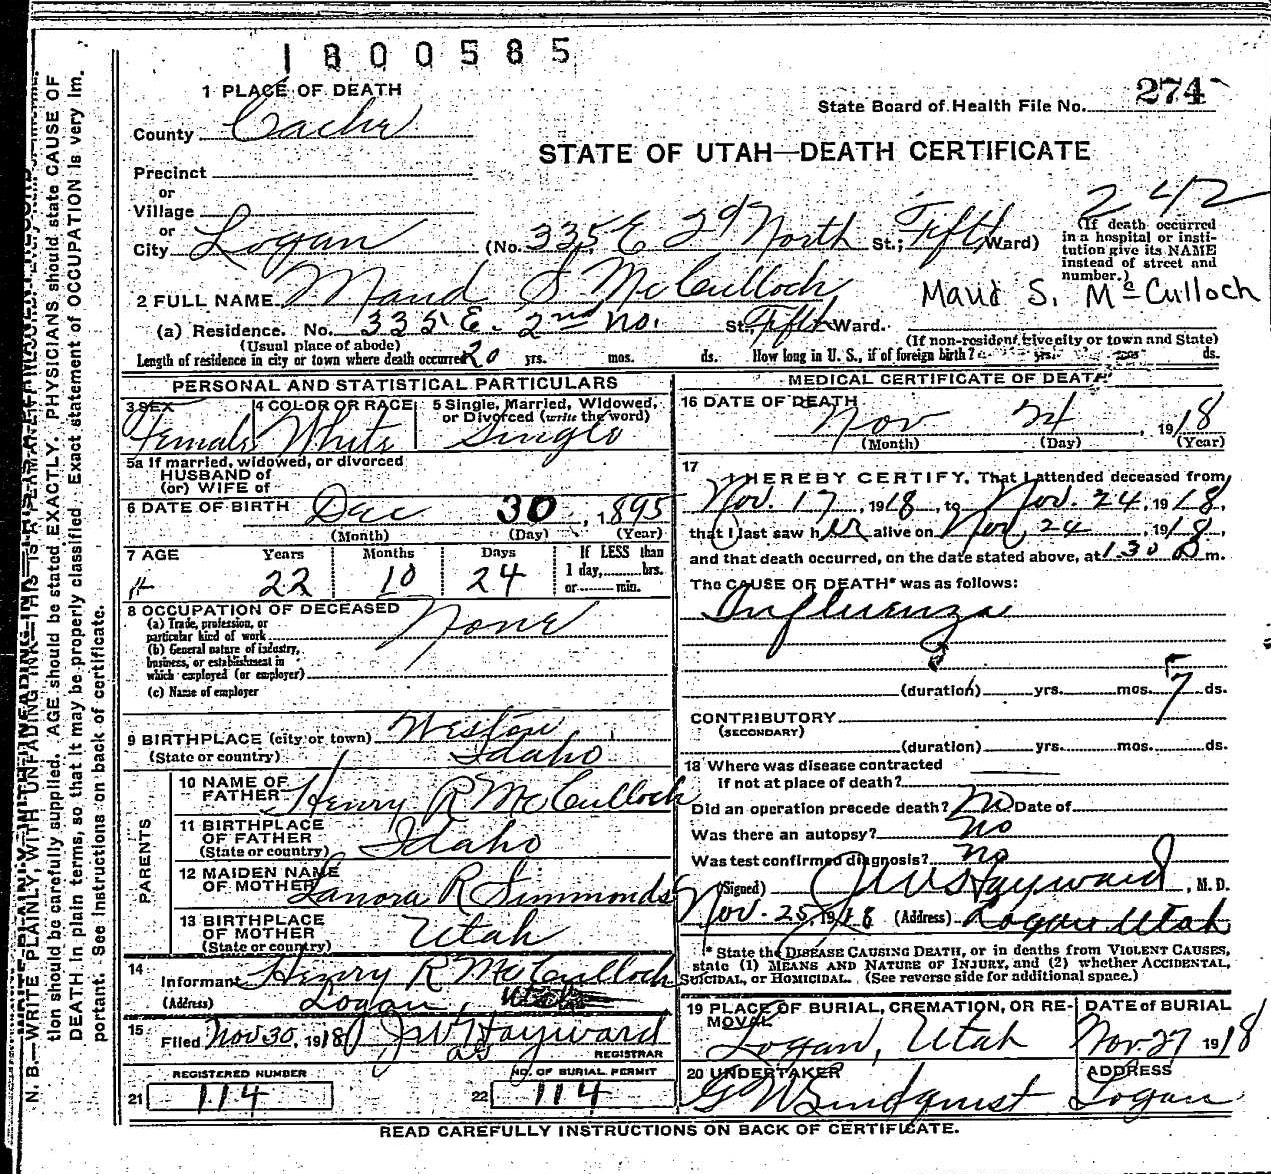 1800585
1 PLACE OF DEATH
State Board of Health File No. 274
County Cache
STATE OF UTAH—DEATH CERTIFICATE
Precinct
or
Village
242
or
City Logan (No. 335 E 2d North St.; Fifth Ward)
(If death occurred in a hospital or insti-
tution give its NAME instead of street and number.)
2 FULL NAME Maud S McCulloch
Maud S. McCulloch
(a) Residence. No. 335 E. 2nd No. St., Fifth Ward.
(Usual place of abode)
(If non-resident give city or town and State)
Length of residence in city or town where death occurred 20 yrs. mos. ds. How long in U. S., if of foreign birth? yrs. mos. ds.
PERSONAL AND STATISTICAL PARTICULARS
3 SEX Female
4 COLOR OR RACE White
5 Single, Married, Widowed, or Divorced (write the word) Single
5a If married, widowed, or divorced
HUSBAND of
(or) WIFE of
6 DATE OF BIRTH Dec 30, 1895
(Month) (Day) (Year)
7 AGE Years Months Days If LESS than
22 10 24 1 day, hrs.
or min.
8 OCCUPATION OF DECEASED None
(a) Trade, profession, or
particular kind of work
(b) General nature of industry,
business, or establishment in
which employed (or employer)
(c) Name of employer
9 BIRTHPLACE (city or town) Weston
(State or country) Idaho
PARENTS
10 NAME OF FATHER Henry R McCulloch
11 BIRTHPLACE OF FATHER (State or country) Idaho
12 MAIDEN NAME OF MOTHER Lanora R Simmonds
13 BIRTHPLACE OF MOTHER (State or country) Utah
14 Informant Henry R McCulloch
(Address) Logan, Utah
15 Filed Nov 30, 1918 J W Hayward
REGISTRAR
REGISTERED NUMBER
21 114
NO. OF BURIAL PERMIT
22 114
MEDICAL CERTIFICATE OF DEATH
16 DATE OF DEATH
Nov 24, 1918
(Month) (Day) (Year)
17 I HEREBY CERTIFY, That I attended deceased from
Nov. 17, 1918, to Nov. 24, 1918,
that I last saw her alive on Nov 24, 1918,
and that death occurred, on the date stated above, at 130 m.
The CAUSE OF DEATH* was as follows:
Influenza
(duration) yrs. mos. 7 ds.
CONTRIBUTORY
(SECONDARY)
(duration) yrs. mos. ds.
18 Where was disease contracted
If not at place of death?
Did an operation precede death? no Date of
Was there an autopsy? no
Was test confirmed diagnosis? no
(Signed) J W Hayward, M. D.
Nov. 25, 1918 (Address) Logan Utah
* State the DISEASE CAUSING DEATH, or in deaths from VIOLENT CAUSES,
state (1) MEANS AND NATURE OF INJURY, and (2) whether ACCIDENTAL,
SUICIDAL, or HOMICIDAL. (See reverse side for additional space.)
19 PLACE OF BURIAL, CREMATION, OR RE-
MOVAL
Logan, Utah
DATE OF BURIAL
Nov. 27 1918
20 UNDERTAKER
G W Lindquist
ADDRESS
Logan
READ CAREFULLY INSTRUCTIONS ON BACK OF CERTIFICATE.
N. B.—WRITE PLAINLY, WITH UNFADING INK—THIS IS A PERMANENT RECORD.
tion should be carefully supplied. AGE should be stated EXACTLY. PHYSICIANS should state CAUSE OF
DEATH in plain terms, so that it may be properly classified. Exact statement of OCCUPATION is very im-
portant. See instructions on back of certificate.